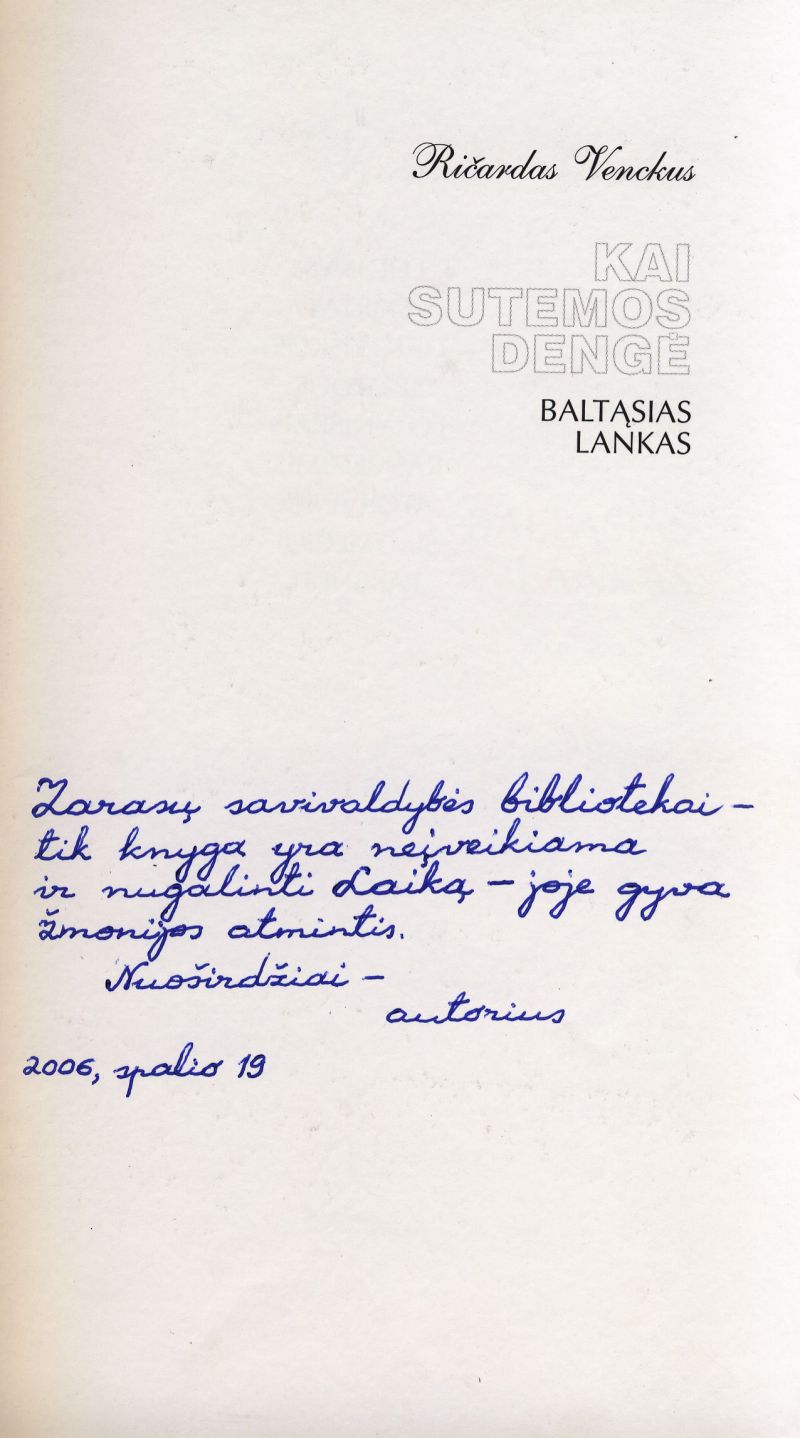 Ričardas Venckus
KAI
SUTEMOS
DENGĖ
BALTĄSIAS
LANKAS
Zarasų savivaldybės bibliotekai –
tik knyga yra neįveikiama
ir nugalinti Laiką – joje gyva
žmonijos atmintis.
Nuoširdžiai –
autorius
2006, spalio 19